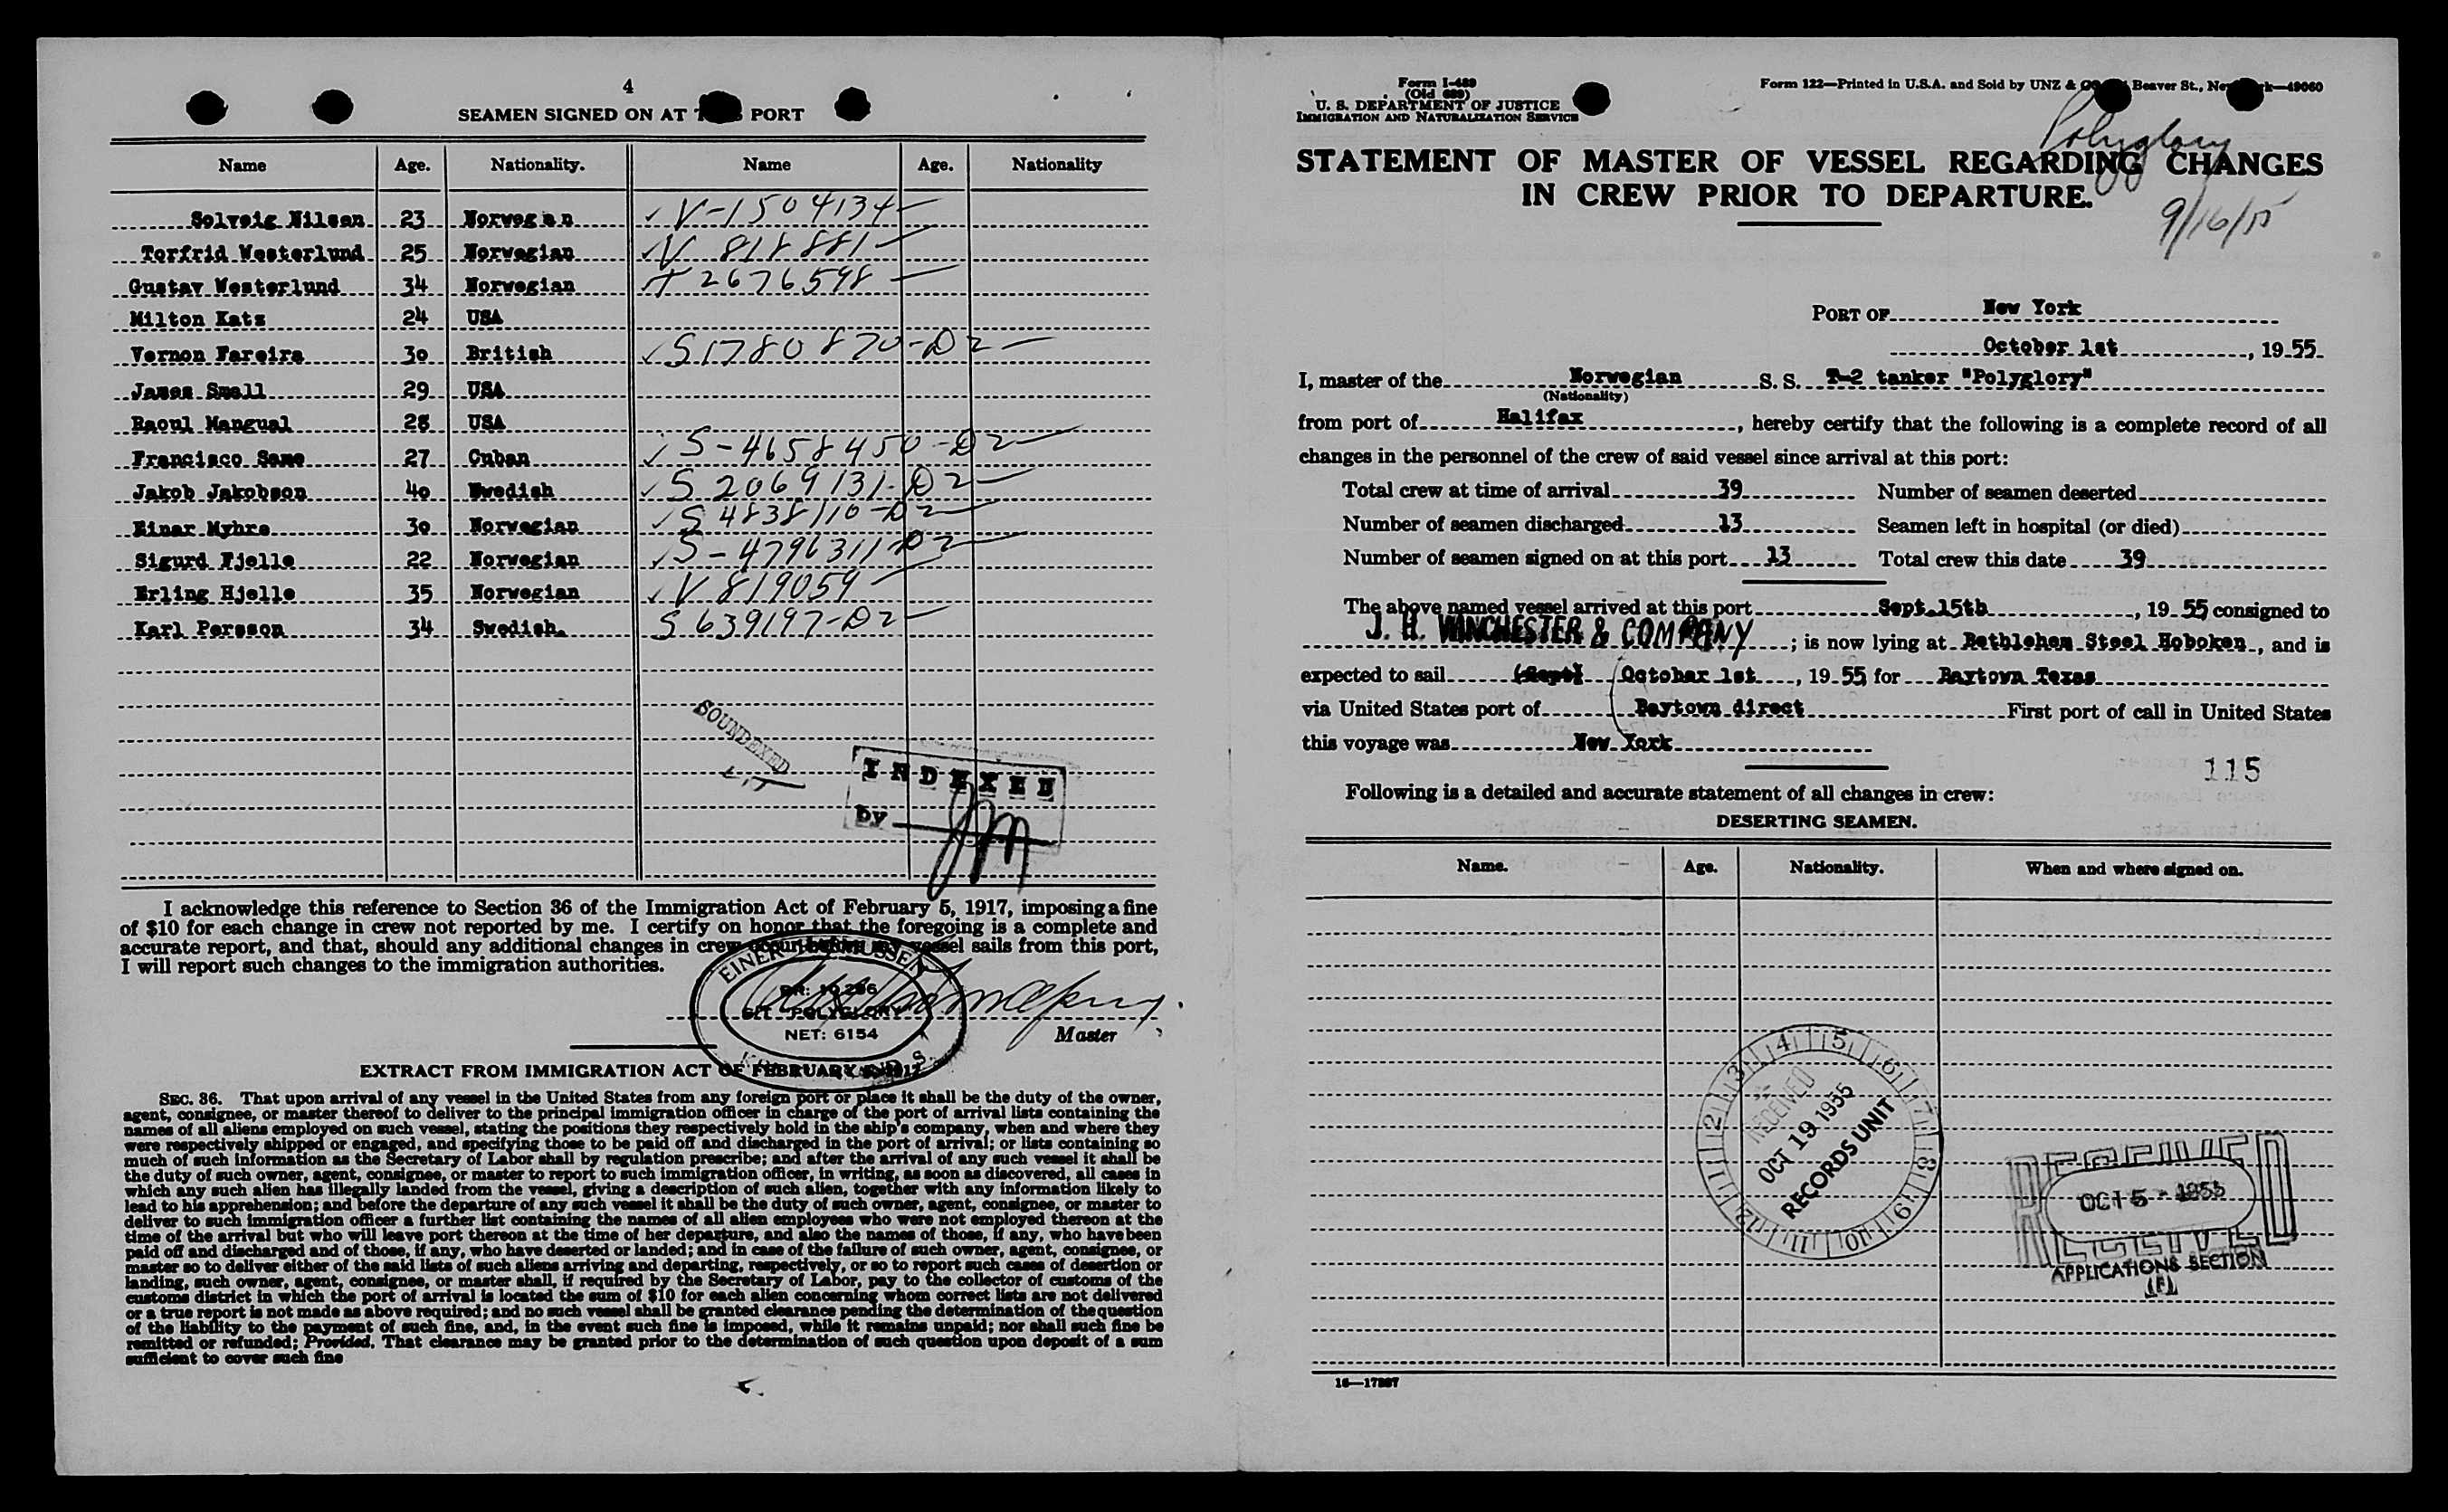 4
SEAMEN SIGNED ON AT PORT
Name Age. Nationality. Name Age. Nationality
Solveig Nilsen 23 Norwegan V-1504134
Torfrid Westerlund 25 Norwegian V 818881
Gustav Westerlund 34 Norwegian 2676598
Milton Katz 24 USA
Vernon Fareira 30 British S1780870-D2
James Smell 29 USA
Raoul Mangual 28 USA
Francisco Same 27 Cuban S-4658450-D2
Jakob Jakobson 40 Swedish S 2069131-D2
Einar Myhre 30 Norwegian S 4838110-D2
Sigurd Fjelle 22 Norwegian S-4796311-D2
Erling Hjelle 35 Norwegian V 819059
Karl Persson 34 Swedish. S 639197-D2
SOUNDEXED
INDEXED
by
I acknowledge this reference to Section 36 of the Immigration Act of February 5, 1917, imposing a fine
of $10 for each change in crew not reported by me. I certify on honor that the foregoing is a complete and
accurate report, and that, should any additional changes in crew occur before my vessel sails from this port,
I will report such changes to the immigration authorities.
POLYGLORY
NET: 6154
Master
EXTRACT FROM IMMIGRATION ACT OF FEBRUARY 5, 1917
SEC. 36. That upon arrival of any vessel in the United States from any foreign port or place it shall be the duty of the owner,
agent, consignee, or master thereof to deliver to the principal immigration officer in charge of the port of arrival lists containing the
names of all aliens employed on such vessel, stating the positions they respectively hold in the ship's company, when and where they
were respectively shipped or engaged, and specifying those to be paid off and discharged in the port of arrival; or lists containing so
much of such information as the Secretary of Labor shall by regulation prescribe; and after the arrival of any such vessel it shall be
the duty of such owner, agent, consignee, or master to report to such immigration officer, in writing, as soon as discovered, all cases in
which any such alien has illegally landed from the vessel, giving a description of such alien, together with any information likely to
lead to his apprehension; and before the departure of any such vessel it shall be the duty of such owner, agent, consignee, or master to
deliver to such immigration officer a further list containing the names of all alien employees who were not employed thereon at the
time of the arrival but who will leave port thereon at the time of her departure, and also the names of those, if any, who have been
paid off and discharged and of those, if any, who have deserted or landed; and in case of the failure of such owner, agent, consignee, or
master so to deliver either of the said lists of such aliens arriving and departing, respectively, or so to report such cases of desertion or
landing, such owner, agent, consignee, or master shall, if required by the Secretary of Labor, pay to the collector of customs of the
customs district in which the port of arrival is located the sum of $10 for each alien concerning whom correct lists are not delivered
or a true report is not made as above required; and no such vessel shall be granted clearance pending the determination of the question
of the liability to the payment of such fine, and, in the event such fine is imposed, while it remains unpaid; nor shall such fine be
remitted or refunded; Provided, That clearance may be granted prior to the determination of such question upon deposit of a sum
sufficient to cover such fine
Form I-489
(Old 689)
U. S. DEPARTMENT OF JUSTICE
IMMIGRATION AND NATURALIZATION SERVICE
Form 122—Printed in U.S.A. and Sold by UNZ & Beaver St., 49060
Polyglory
STATEMENT OF MASTER OF VESSEL REGARDING CHANGES
IN CREW PRIOR TO DEPARTURE.
9/16/55
PORT OF New York
October 1st, 19 55
I, master of the Norwegian S. S. T-2 tanker "Polyglory"
(Nationality)
from port of Halifax, hereby certify that the following is a complete record of all
changes in the personnel of the crew of said vessel since arrival at this port:
Total crew at time of arrival 39 Number of seamen deserted
Number of seamen discharged 13 Seamen left in hospital (or died)
Number of seamen signed on at this port 13 Total crew this date 39
The above named vessel arrived at this port Sept. 15th, 19 55 consigned to
J. H. WINCHESTER & COMPANY; is now lying at Bethlehem Steel Hoboken, and is
expected to sail (Sept) October 1st, 19 55 for Baytown Texas
via United States port of Baytown direct First port of call in United States
this voyage was New York
115
Following is a detailed and accurate statement of all changes in crew:
DESERTING SEAMEN.
Name. Age. Nationality. When and where signed on.
RECEIVED
OCT 19 1955
RECORDS UNIT
1 2 3 4 5 6 7 8 9 10 11 12
RECEIVED
OCT 5 - 1955
APPLICATIONS SECTION
(F)